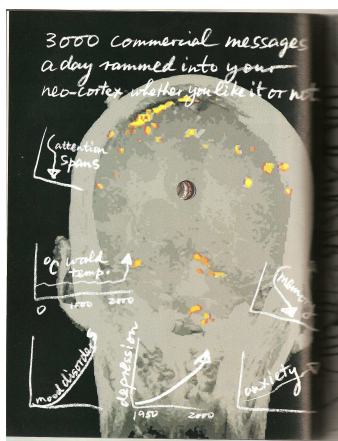 3000 commercial messages
a day rammed into your
neo-cortex whether you like it or not
attention
spans
°C world
temp.
0 1000 2000
memory
mood disorders
depression
1950 2000
anxiety